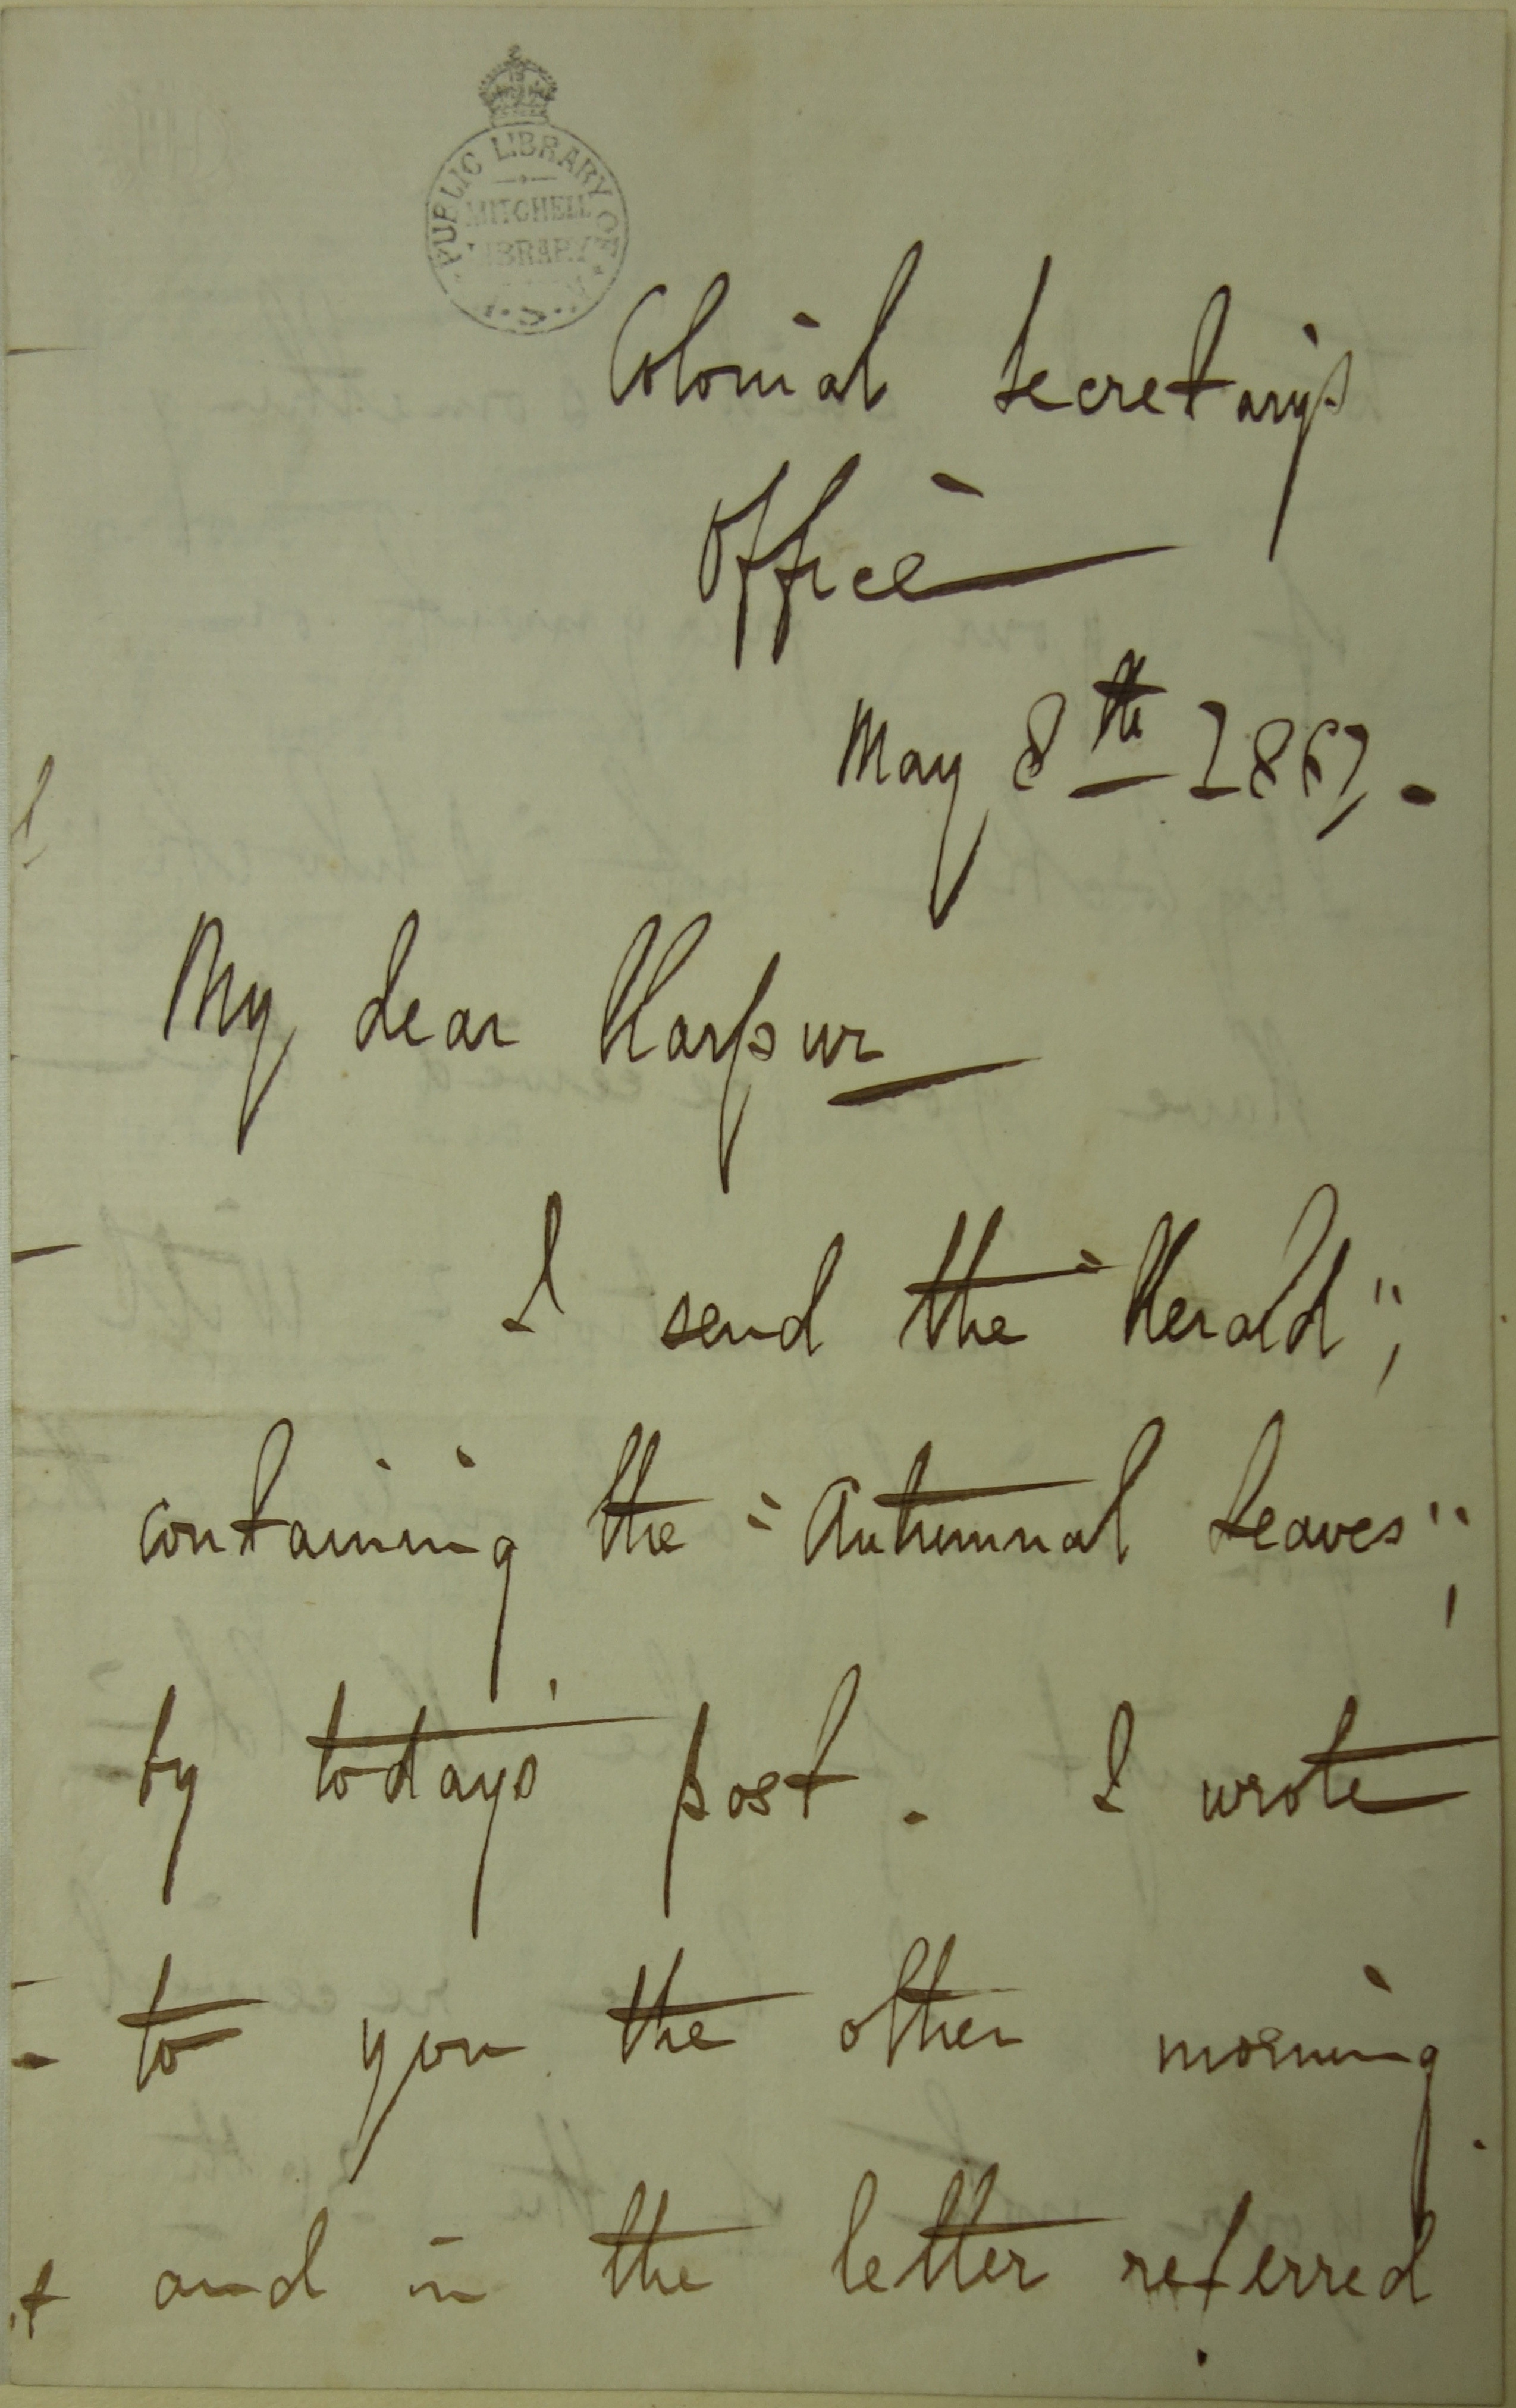 PUBLIC LIBRARY OF N.S.W.
MITCHELL
LIBRARY
Colonial Secretary's
Office
May 8th 1867.
My dear Harpur
I send the "Herald",
containing the "Autumnal Leaves",
by today's post. I wrote
to you the other morning
and in the letter referred